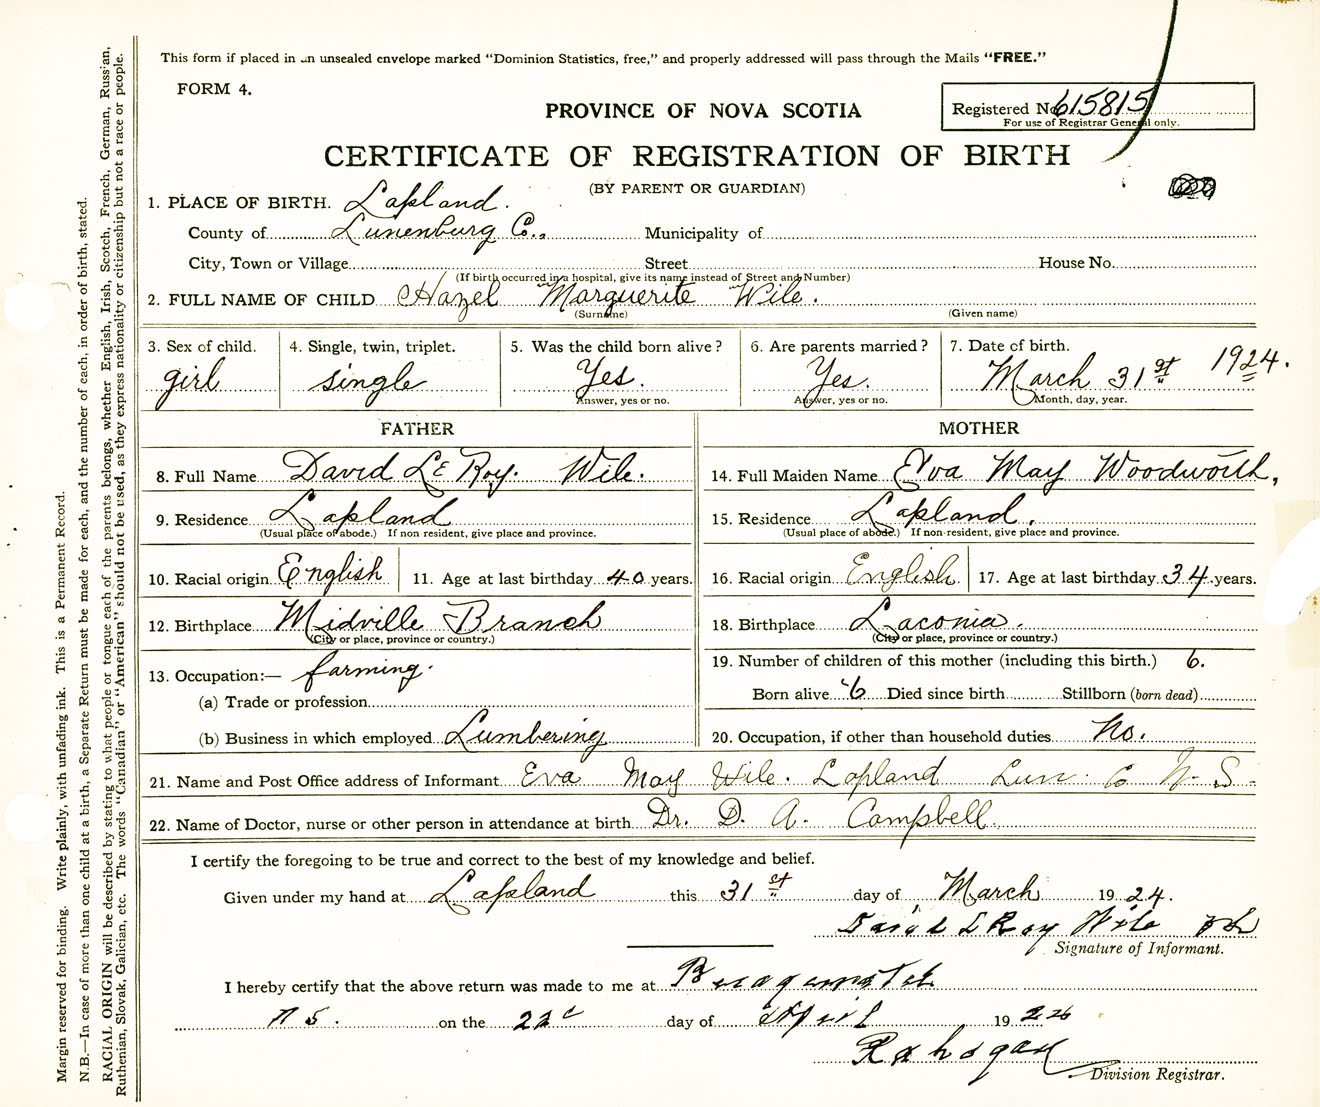 This form if placed in an unsealed envelope marked "Dominion Statistics, free," and properly addressed will pass through the Mails "FREE."
FORM 4.
PROVINCE OF NOVA SCOTIA
Registered No. 615815
For use of Registrar General only.
CERTIFICATE OF REGISTRATION OF BIRTH
(BY PARENT OR GUARDIAN)
1. PLACE OF BIRTH. Lapland.
County of Lunenburg Co., Municipality of
City, Town or Village Street House No.
(If birth occurred in a hospital, give its name instead of Street and Number)
2. FULL NAME OF CHILD Hazel Marguerite Wile.
(Surname) (Given name)
3. Sex of child. 4. Single, twin, triplet. 5. Was the child born alive? 6. Are parents married? 7. Date of birth.
girl single Yes. Yes. March 31st 1924.
Answer, yes or no. Answer, yes or no. Month, day, year.
FATHER MOTHER
8. Full Name David LeRoy. Wile. 14. Full Maiden Name Eva May Woodworth,
9. Residence Lapland 15. Residence Lapland.
(Usual place of abode.) If non-resident, give place and province. (Usual place of abode.) If non-resident, give place and province.
10. Racial origin English 11. Age at last birthday 40 years. 16. Racial origin English 17. Age at last birthday 34 years.
12. Birthplace Midville Branch 18. Birthplace Laconia.
(City or place, province or country.) (City or place, province or country.)
13. Occupation:— farming. 19. Number of children of this mother (including this birth.) 6.
(a) Trade or profession Born alive 6 Died since birth Stillborn (born dead)
(b) Business in which employed Lumbering 20. Occupation, if other than household duties No.
21. Name and Post Office address of Informant Eva May Wile. Lapland Lun. Co N. S.
22. Name of Doctor, nurse or other person in attendance at birth Dr. D. A. Campbell.
I certify the foregoing to be true and correct to the best of my knowledge and belief.
Given under my hand at Lapland this 31st day of March 1924.
David L Roy Wile
Signature of Informant.
I hereby certify that the above return was made to me at
N S. on the 22 day of April 19
Division Registrar.
Margin reserved for binding. Write plainly, with unfading ink. This is a Permanent Record.
N.B.—In case of more than one child at a birth, a Separate Return must be made for each, and the number of each, in order of birth, stated.
RACIAL ORIGIN will be described by stating to what people or tongue each of the parents belongs, whether English, Irish, Scotch, French, German, Russian,
Ruthenian, Slovak, Galician, etc. The words "Canadian" or "American" should not be used, as they express nationality or citizenship but not a race or people.